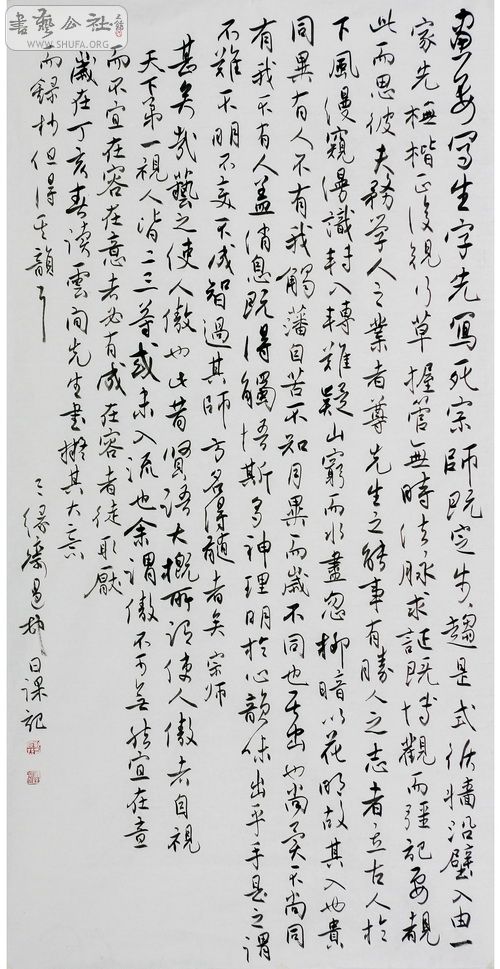 書藝公社
WWW.SHUFA.ORG
画要写生字先写死宗师既定步趋是式依墙沿壁入由一
家先橅楷正後親行草握管無時法脉求証既博觀而强記要覩
此而思彼夫務学人之業者尊先生之能事有勝人之志者立古人於
下風漫窺漫識封入轉難疑山窮而水盡忽柳暗以花明故其入也貴
同異有人不有我觸藩自苦不知月異而歲不同也其出也尚異不尚同
有我不有人盖消息既得觸悟斯多神理明於心韻味出乎手是之謂
不難不明不变不成智過其師方名得髓者矣宗师
甚矣哉藝之使人傲也此昔贤語大概所谓使人傲者自視
天下第一視人皆二三等或未入流也余謂傲不可無然宜在意
而不宜在容在意者必有成在容者徒取厭
歲在丁亥春读雲间先生書擬其大意
而錄抄但得其韻耳
三缘齋 邨日課記